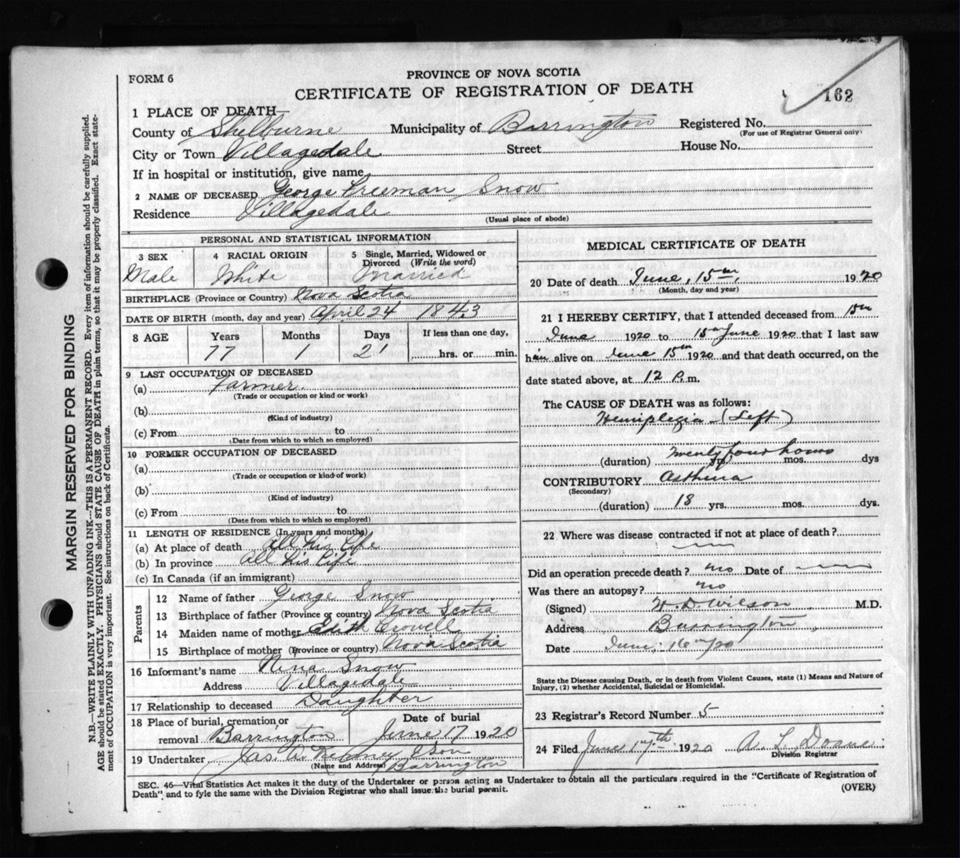 FORM 6
PROVINCE OF NOVA SCOTIA
CERTIFICATE OF REGISTRATION OF DEATH
162
1 PLACE OF DEATH—
County of Shelburne Municipality of Barrington Registered No.
(For use of Registrar General only)
City or Town Villagedale Street House No.
If in hospital or institution, give name
2 NAME OF DECEASED George Freeman Snow
Residence Villagedale
(Usual place of abode)
PERSONAL AND STATISTICAL INFORMATION
3 SEX 4 RACIAL ORIGIN 5 Single, Married, Widowed or Divorced (Write the word)
Male White Married
BIRTHPLACE (Province or Country) Nova Scotia
DATE OF BIRTH (month, day and year) April 24 1843
8 AGE Years Months Days If less than one day,
77 1 21 hrs. or min.
9 LAST OCCUPATION OF DECEASED
(a) Farmer
(Trade or occupation or kind or work)
(b)
(Kind of industry)
(c) From to
(Date from which to which so employed)
10 FORMER OCCUPATION OF DECEASED
(a)
(Trade or occupation or kind of work)
(b)
(Kind of industry)
(c) From to
(Date from which to which so employed)
11 LENGTH OF RESIDENCE (In years and months)
(a) At place of death All his life
(b) In province All his life
(c) In Canada (if an immigrant)
Parents
12 Name of father George Snow
13 Birthplace of father (Province or country) Nova Scotia
14 Maiden name of mother Crowell
15 Birthplace of mother (Province or country) Nova Scotia
16 Informant's name Nina Snow
Address Villagedale
17 Relationship to deceased Daughter
18 Place of burial, cremation or removal Barrington Date of burial June 17 1920
19 Undertaker Jas. & Son
(Name and Address) Barrington
MEDICAL CERTIFICATE OF DEATH
20 Date of death June 15th, 1920
(Month, day and year)
21 I HEREBY CERTIFY, that I attended deceased from 15th
June 1920 to 15th June 1920 that I last saw
him alive on June 15th 1920 and that death occurred, on the
date stated above, at 12 P.m.
The CAUSE OF DEATH was as follows:
Hemiplegia (Left)
(duration) Twenty four hours yrs. mos. dys
CONTRIBUTORY Asthma
(Secondary)
(duration) 18 yrs. mos. dys.
22 Where was disease contracted if not at place of death?
Did an operation precede death? no Date of
Was there an autopsy? no
(Signed) H. D. Wilson M.D.
Address Barrington
Date June 16th/20
State the Disease causing Death, or in death from Violent Causes, state (1) Means and Nature of
Injury, (2) whether Accidental, Suicidal or Homicidal.
23 Registrar's Record Number 5
24 Filed June 17th 1920 A. L. Doane
Division Registrar
SEC. 46—Vital Statistics Act makes it the duty of the Undertaker or person acting as Undertaker to obtain all the particulars required in the "Certificate of Registration of
Death" and to fyle the same with the Division Registrar who shall issue the burial permit.
(OVER)
MARGIN RESERVED FOR BINDING
N.B.—WRITE PLAINLY WITH UNFADING INK—THIS IS A PERMANENT RECORD. Every item of information should be carefully supplied.
AGE should be stated EXACTLY. PHYSICIANS should STATE CAUSE OF DEATH in plain terms, so that it may be properly classified. Exact state-
ment of OCCUPATION is very important. See instructions on back of Certificate.